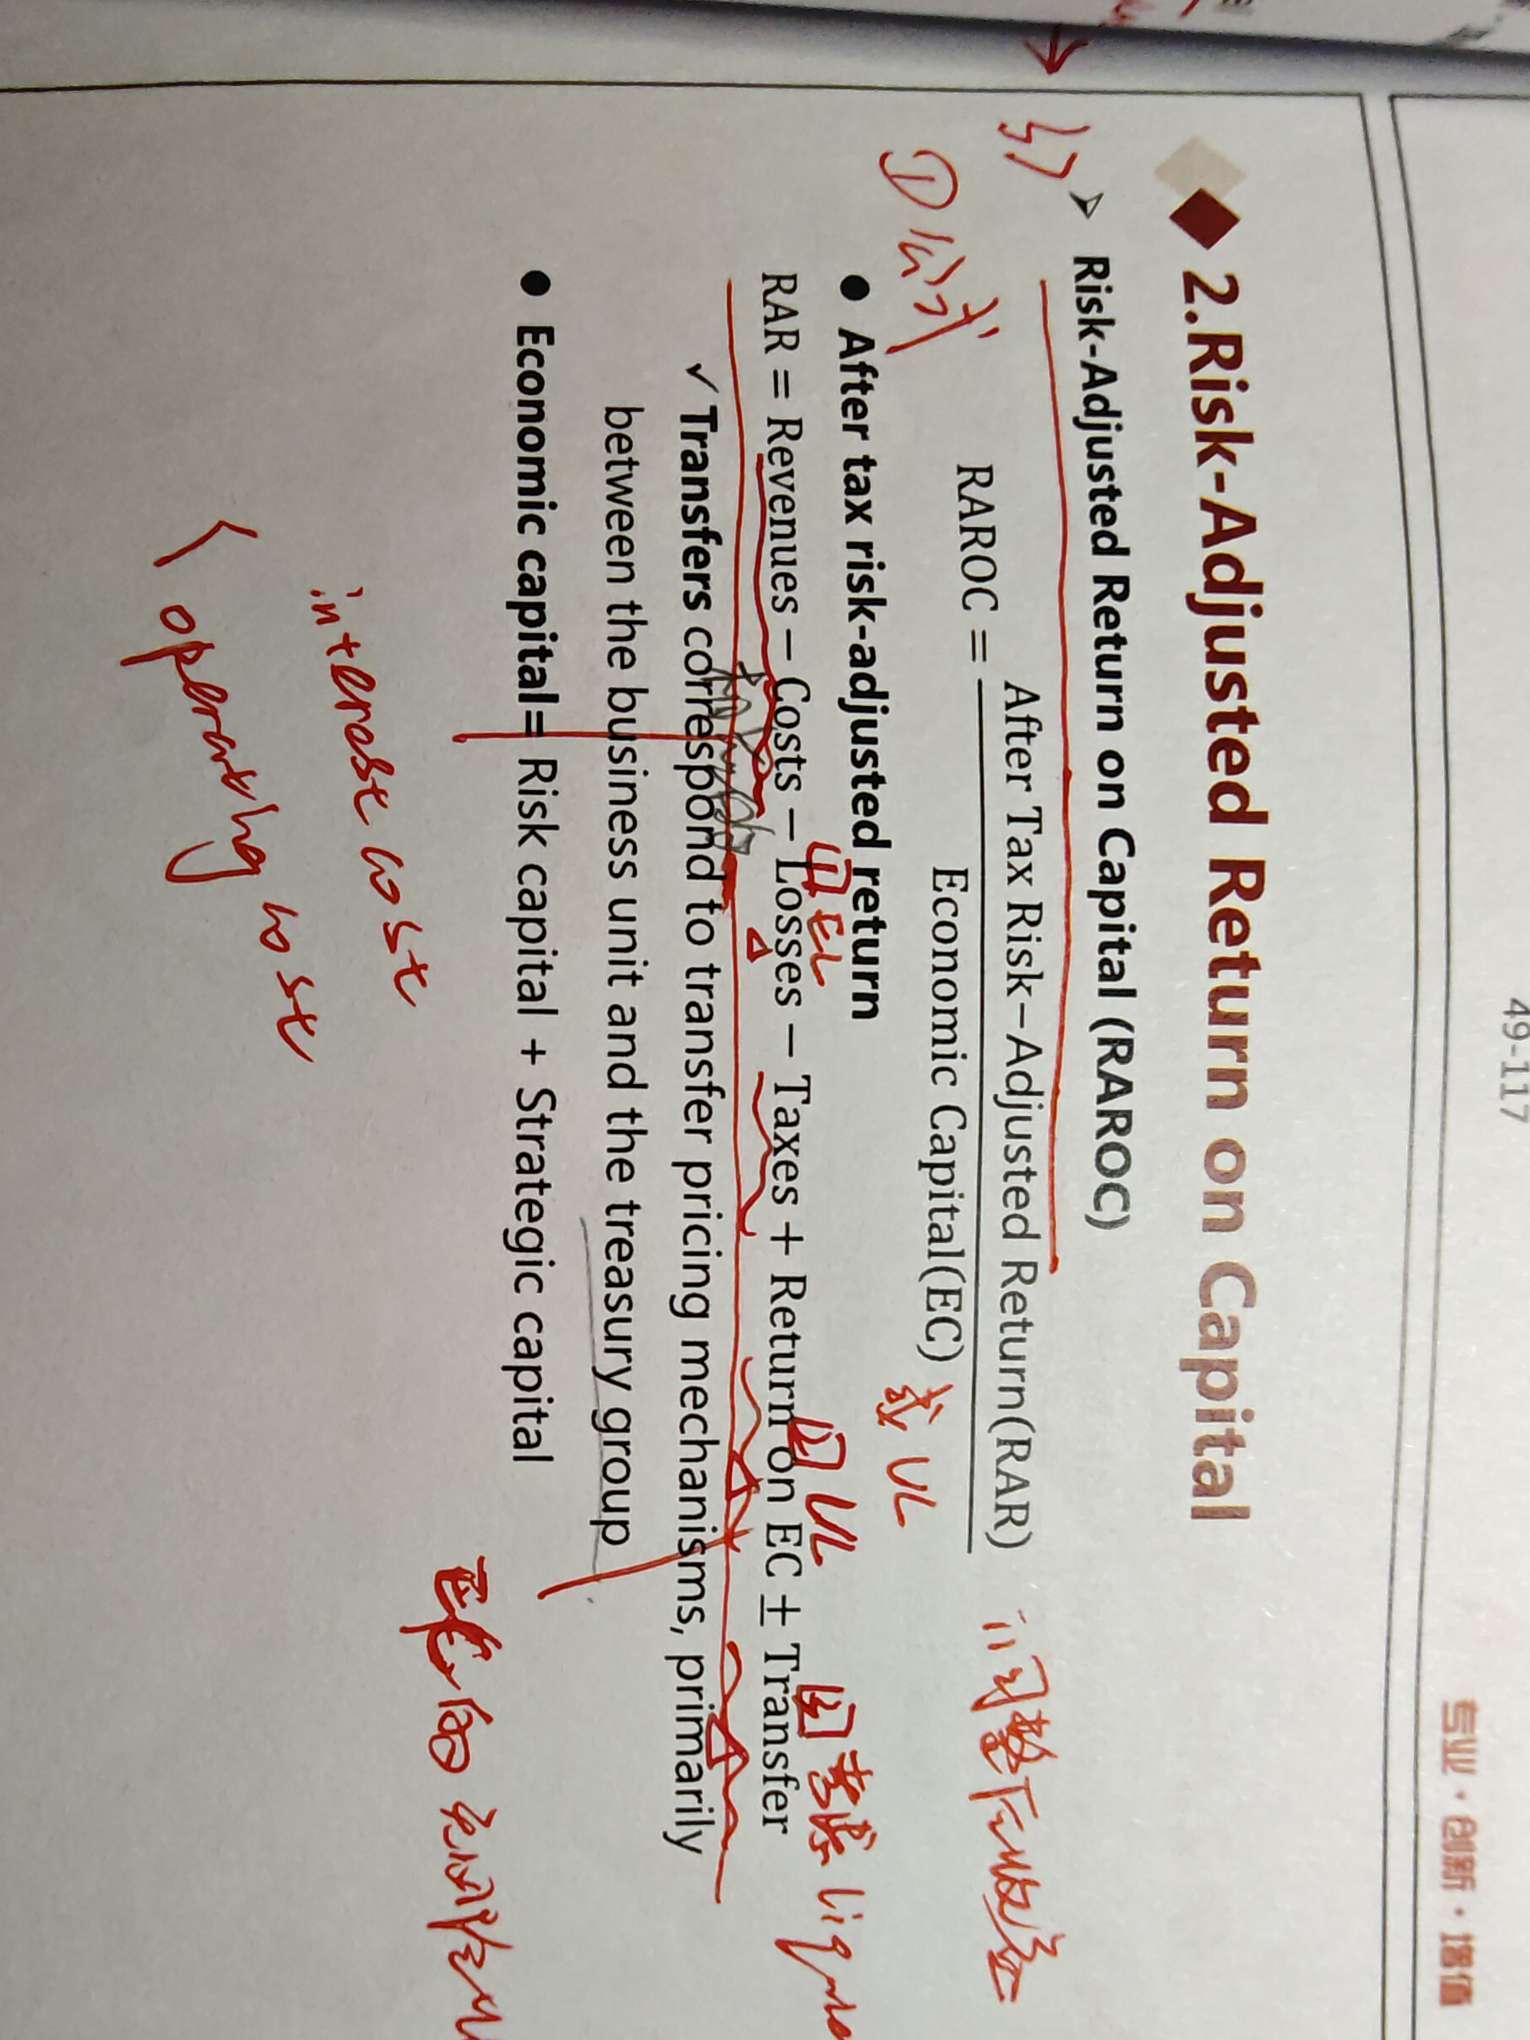 49-117
专业·创新·增值
2.Risk-Adjusted Return on Capital
37
➤ Risk-Adjusted Return on Capital (RAROC)
After Tax Risk−Adjusted Return(RAR)
RAROC =
Economic Capital(EC)
或 UL
① 公式
● After tax risk-adjusted return
① EL
② UL
RAR = Revenues − Costs − Losses − Taxes + Return on EC ± Transfer
✓ Transfers correspond to transfer pricing mechanisms, primarily
between the business unit and the treasury group
● Economic capital= Risk capital + Strategic capital
interest cost
operating cost